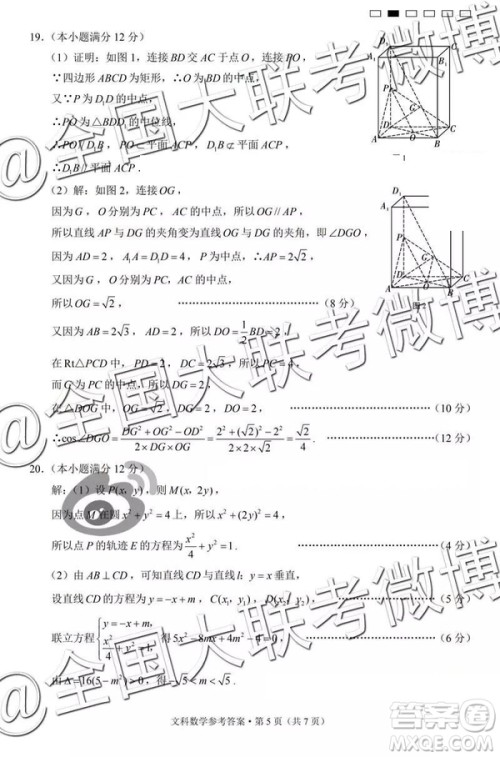 19.（本小题满分 12 分）
（1）证明：如图 1，连接 BD 交 AC 于点 O，连接 PO，
∵四边形 ABCD 为矩形，∴O 为 BD 的中点，
又∵P 为 D₁D 的中点，
∴PO 为△BDD₁ 的中位线，
∴PO∥D₁B，PO⊂平面 ACP，D₁B⊄平面 ACP，
∴D₁B∥平面 ACP．
（2）解：如图 2，连接 OG，
因为 G，O 分别为 PC，AC 的中点，所以 OG∥AP，
所以直线 AP 与 DG 的夹角变为直线 OG 与 DG 的夹角，即∠DGO，
因为 AD=2，A₁A=D₁D=4，P 为中点，∴AP=2√2，
又因为 G，O 分别为中点，
所以 OG=√2，（8 分）
又因为 AB=2√3，AD=2，所以 DO=1/2 BD=2，
在 Rt△PCD 中，PD=2，DC=2√3，所以 PC=4，
而 G 为 PC 的中点，所以 DG=2，
在△DOG 中，OG=√2，DG=2，DO=2，（10 分）
∴cos∠DGO=(DG²+OG²−DO²)/(2×DG×OG)=(2²+(√2)²−2²)/(2×2×√2)=√2/4．（12 分）
20.（本小题满分 12 分）
解：（1）设 P(x，y)，则 M(x，2y)，
因为点 M 在圆 x²+y²=4 上，所以 x²+4y²=4，
所以点 P 的轨迹 E 的方程为 x²/4+y²=1．（4 分）
（2）由 AB⊥CD，可知直线 CD 与直线 l：y=x 垂直，
设直线 CD 的方程为 y=−x+m，C(x₁，y₁)，D(x₂，y₂)，
联立方程 {y=−x+m，x²/4+y²=1，得 5x²−8mx+4m²−4=0，（6 分）
由 Δ=16(5−m²)>0，得 −√5<m<√5．
文科数学参考答案·第 5 页（共 7 页）
@全国大联考微博
@全国大联考微博
@全国大联考微博
作业帮